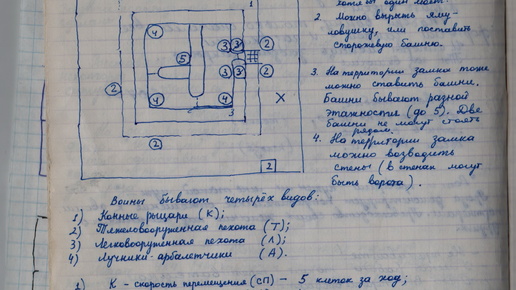 хотя бы один мост.
2. Можно вырыть яму-
ловушку, или поставить
сторожевую башню.
3. На территории замка тоже
можно ставить башни.
Башни бывают разной
этажности (до 5). Две
башни не могут стоять
рядом.
4. На территории замка
можно возводить
стены (в стенах могут
быть ворота).
1
4
3 3 2
5
3 3 2
2
4 4
X
3
2
2
Воины бывают четырёх видов:
1) Конные рыцари (К);
2) Тяжеловооруженная пехота (Т);
3) Легковооруженная пехота (Л);
4) Лучники-арбалетчики (А).
1) К - скорость перемещения (СП) - 5 клеток за ход;